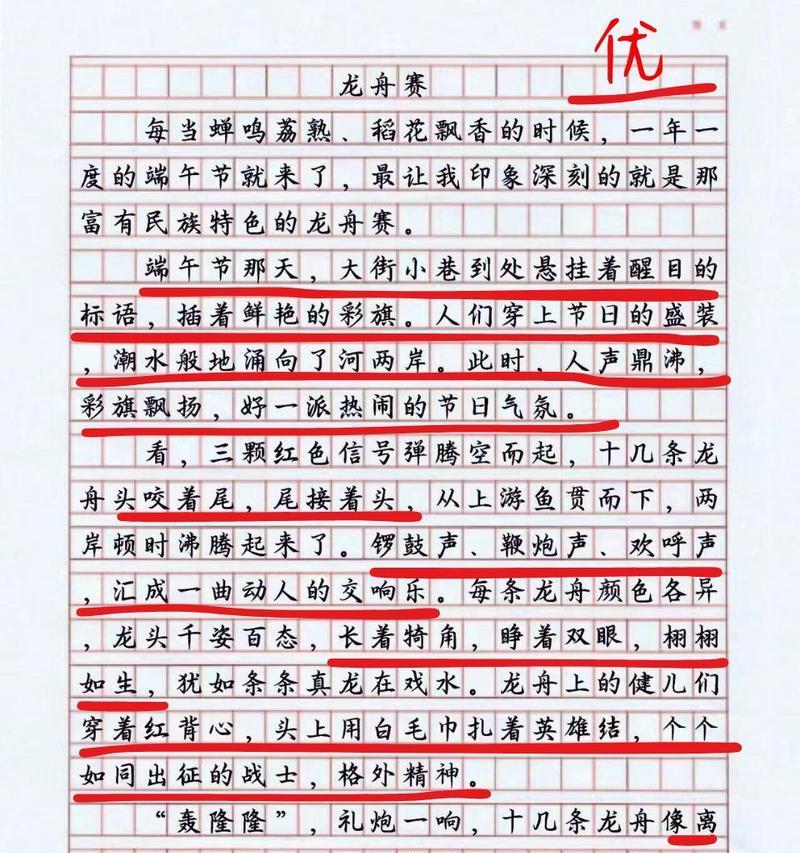 优
龙舟赛
每当蝉鸣荔熟、稻花飘香的时候，一年一
度的端午节就来了，最让我印象深刻的就是那
富有民族特色的龙舟赛。
端午节那天，大街小巷到处悬挂着醒目的
标语，插着鲜艳的彩旗。人们穿上节日的盛装
，潮水般地涌向了河两岸。此时，人声鼎沸，
彩旗飘扬，好一派热闹的节日气氛。
看，三颗红色信号弹腾空而起，十几条龙
舟头咬着尾，尾接着头，从上游鱼贯而下，两
岸顿时沸腾起来了。锣鼓声、鞭炮声、欢呼声
，汇成一曲动人的交响乐。每条龙舟颜色各异
，龙头千姿百态，长着犄角，睁着双眼，栩栩
如生，犹如条条真龙在戏水。龙舟上的健儿们
穿着红背心，头上用白毛巾扎着英雄结，个个
如同出征的战士，格外精神。
“轰隆隆”，礼炮一响，十几条龙舟像离